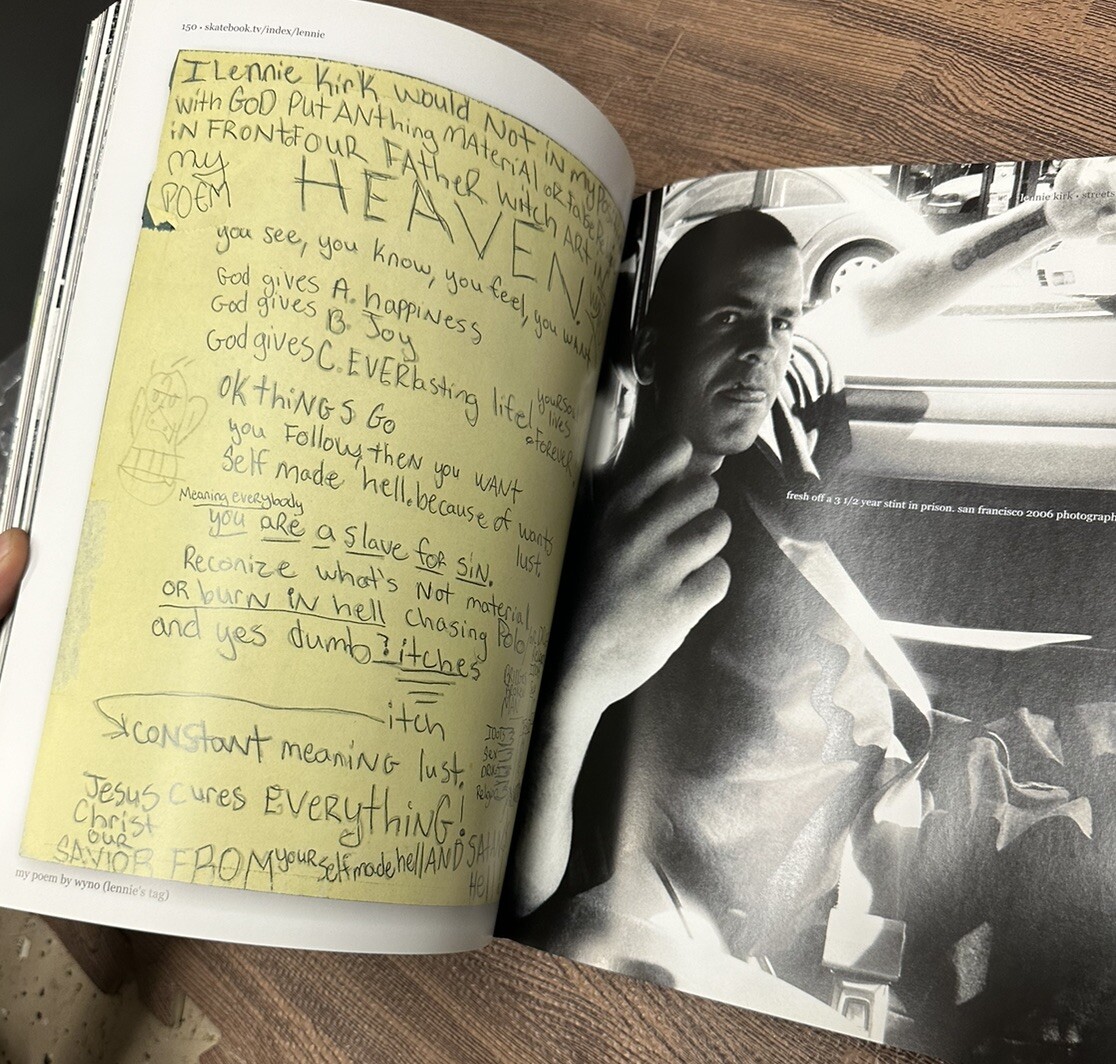 150 • skatebook.tv/index/lennie
I Lennie Kirk would Not in my
with GOD PUT ANthing MAterial or to be
in FRONt OF OUR FATHER witch ART IN
my
POEM
HEAVEN.
you see, you know, you feel, you WANt
God gives A. happiness
God gives B. Joy
God gives C. EVERlasting life!
yoursoul
lives
FOREVER
OK thiNGS Go
you Follow, then you WANT
Self made hell. because of wants
lust.
Meaning everybody
you are a slave for sin.
Reconize what's Not material
OR burn iN hell chasing Polo
and yes dumb ?itches
itch
constant meaning lust.
Jesus cures EVERYthiNG!
Christ
our
SAVIOR FROM your selfmade hell AND
my poem by wyno (lennie's tag)
lennie kirk • streets
fresh off a 3 1/2 year stint in prison. san francisco 2006 photograph